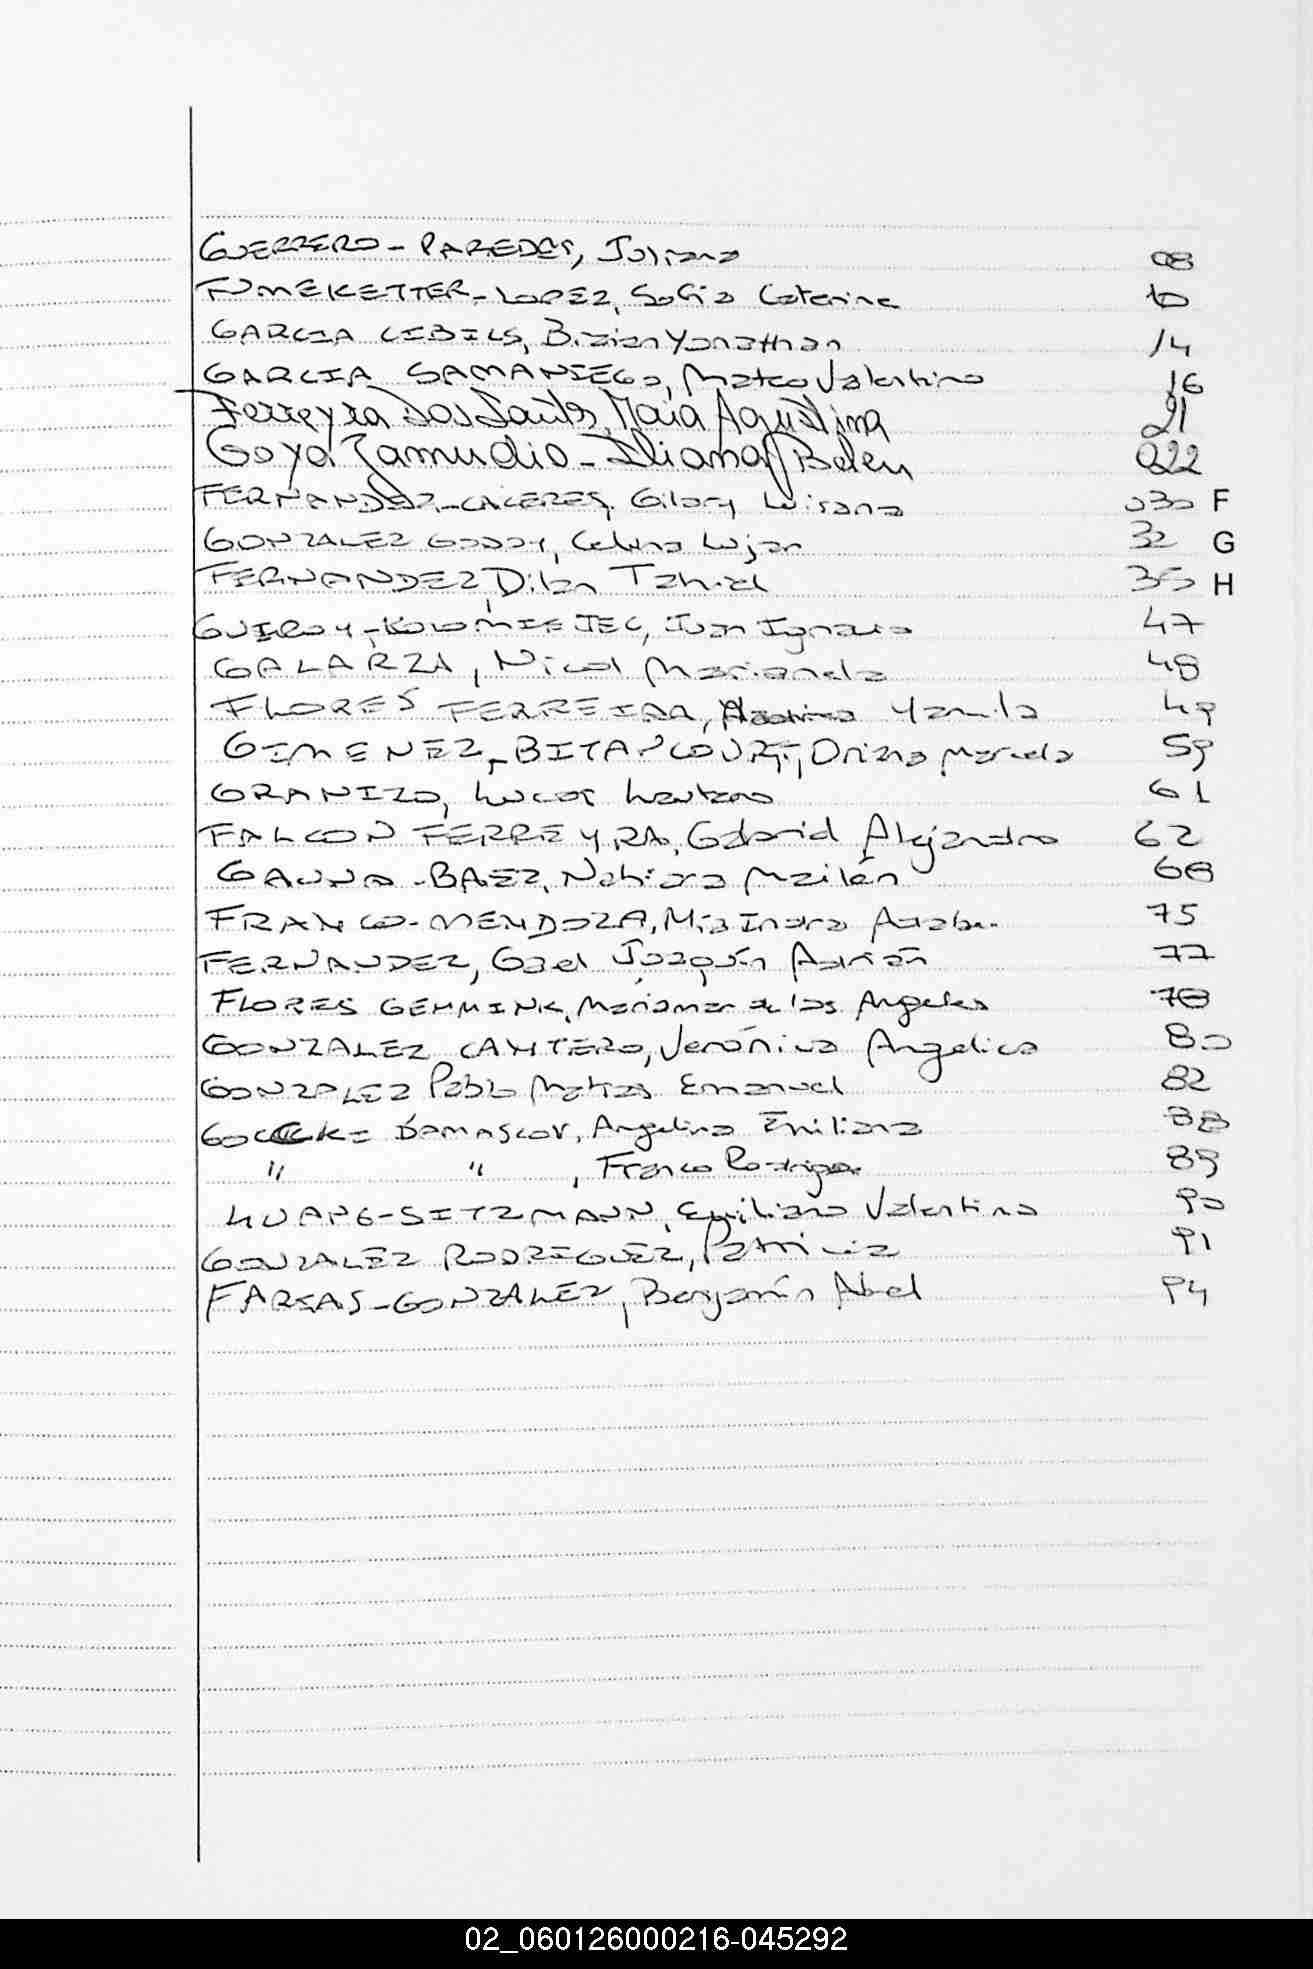 GUERRERO - PAREDES, Juliana 08
FUMEKETTER - LOPEZ, Sofia Caterina 10
GARCIA LEBILS, Brian Yonathan 14
GARCIA SAMANIEGO, Mateo Valentino 16
Ferreyra Dos Santos, Maia Agustina 21
Goya Zamudio - Iliana Belen 022
FERNANDEZ - CACERES, Gilary Luisana 030 F
GONZALEZ GODOY, Celina Lujan 32 G
FERNANDEZ, Dilan Tahiel 35 H
Juan Ignacio 47
GALARZA, Nicol Marianela 48
FLORES FERREIRA, Yamila 49
GIMENEZ, Oriana Marcela 59
GRANIZO, Lucas Lautaro 61
FALCON FERREYRA, Gabriel Alejandro 62
GAUNA - BAEZ, Nahiara Mailén 68
FRANCO - MENDOZA, Mia Indra 75
FERNANDEZ, Gael Joaquín Adrián 77
FLORES GEMMINK, Mariamar de los Angeles 78
GONZALEZ CANTERO, Verónica Angelica 80
GONZALEZ Pablo Matias Emanuel 82
Damascov, Angelina Emiliana 88
" " , Franco Rodrigo 89
SITZMANN, Emiliano Valentino 90
GONZALEZ RODRIGUEZ, Patricia 91
FARIAS - GONZALEZ, Benjamín Abel 94
02_060126000216-045292